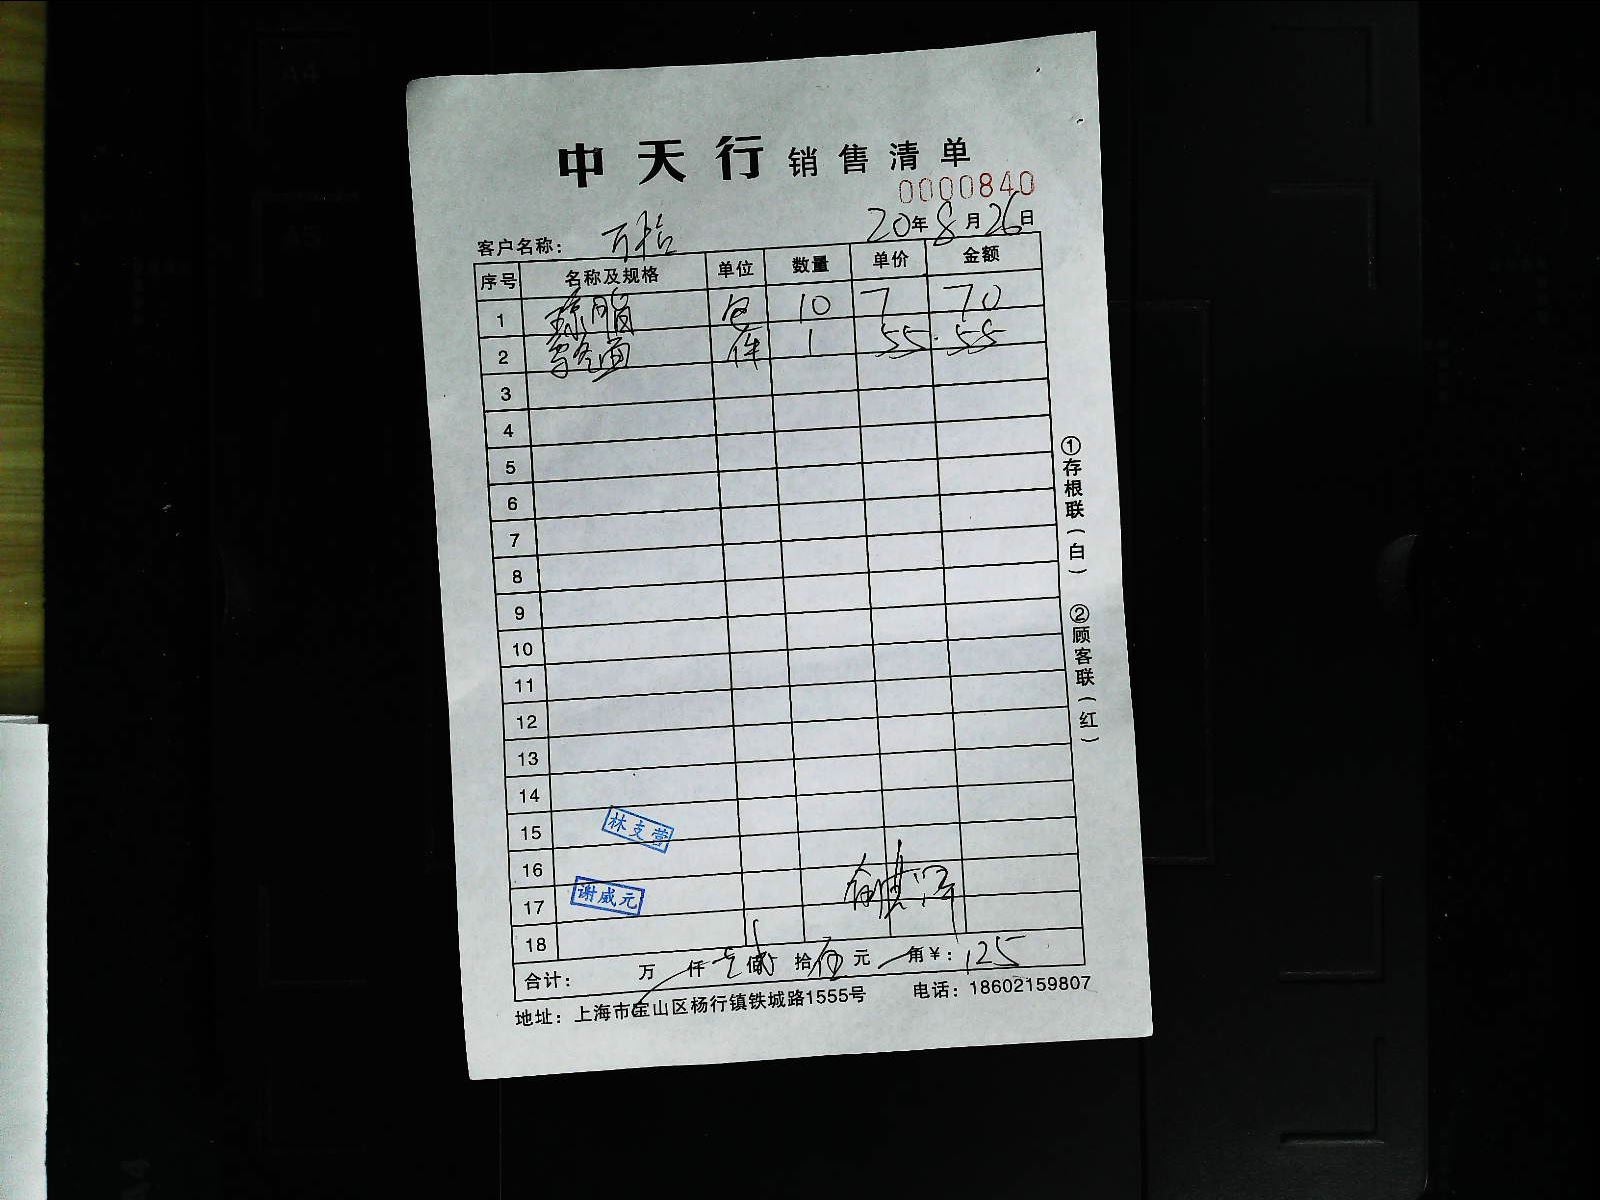 中天行 销售清单
0000840
20年8月26日
客户名称:万裕
序号 名称及规格 单位 数量 单价 金额
1 琼脂 包 10 7 70
2 件 1 55 55
3
4
5
6
7
8
9
10
11
12
13
14
15 林支营
16
17 谢威元
18
合计: 万 仟 壹佰 贰拾 伍元 角¥:125
地址:上海市宝山区杨行镇铁城路1555号 电话:18602159807
①存根联(白) ②顾客联(红)